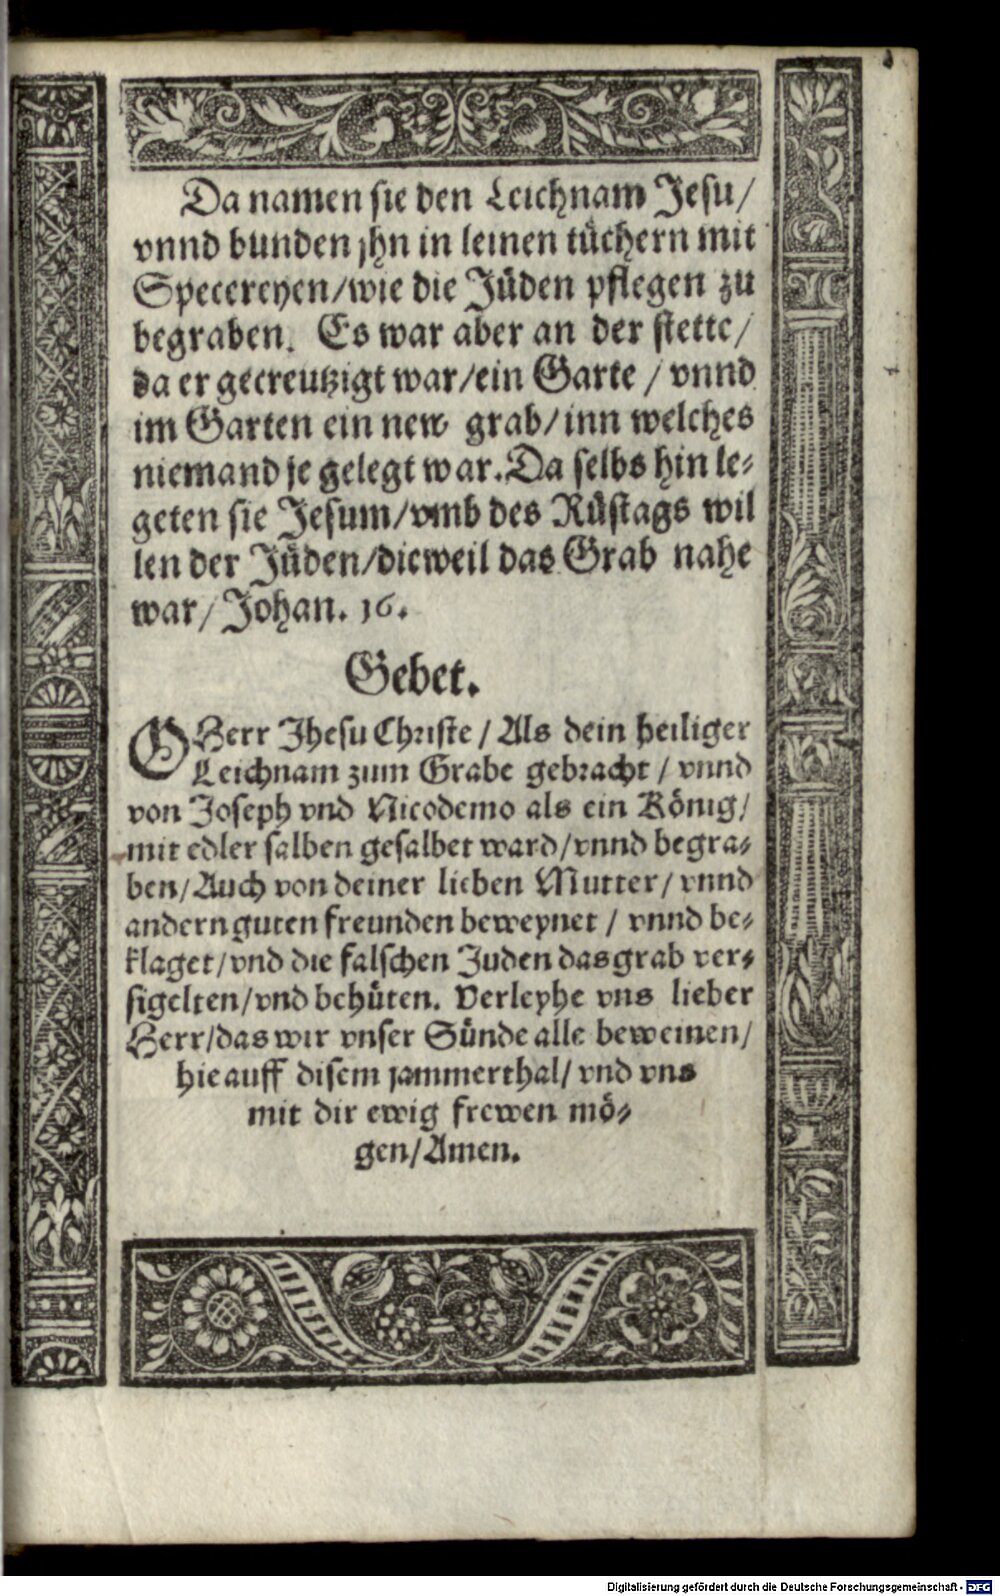 Da namen sie den Leichnam Jesu/
vnnd bunden jhn in leinen tüchern mit
Specereyen/wie die Jüden pflegen zu
begraben. Es war aber an der stette/
da er gecreutzigt war/ein Garte / vnnd
im Garten ein new grab/inn welches
niemand je gelegt war. Da selbs hin le⸗
geten sie Jesum/vmb des Rüstags wil
len der Jüden/dieweil das Grab nahe
war/Johan. 16.
Gebet.
O Herr Jhesu Christe / Als dein heiliger
Leichnam zum Grabe gebracht / vnnd
von Joseph vnd Nicodemo als ein König/
mit edler salben gesalbet ward/vnnd begra⸗
ben/Auch von deiner lieben Mutter/ vnnd
andern guten freunden beweynet / vnnd be⸗
klaget/vnd die falschen Juden das grab ver⸗
sigelten/vnd behüten. Verleyhe vns lieber
Herr/das wir vnser Sünde alle beweinen/
hie auff disem jammerthal/ vnd vns
mit dir ewig frewen mö⸗
gen/Amen.
Digitalisierung gefördert durch die Deutsche Forschungsgemeinschaft - DFG